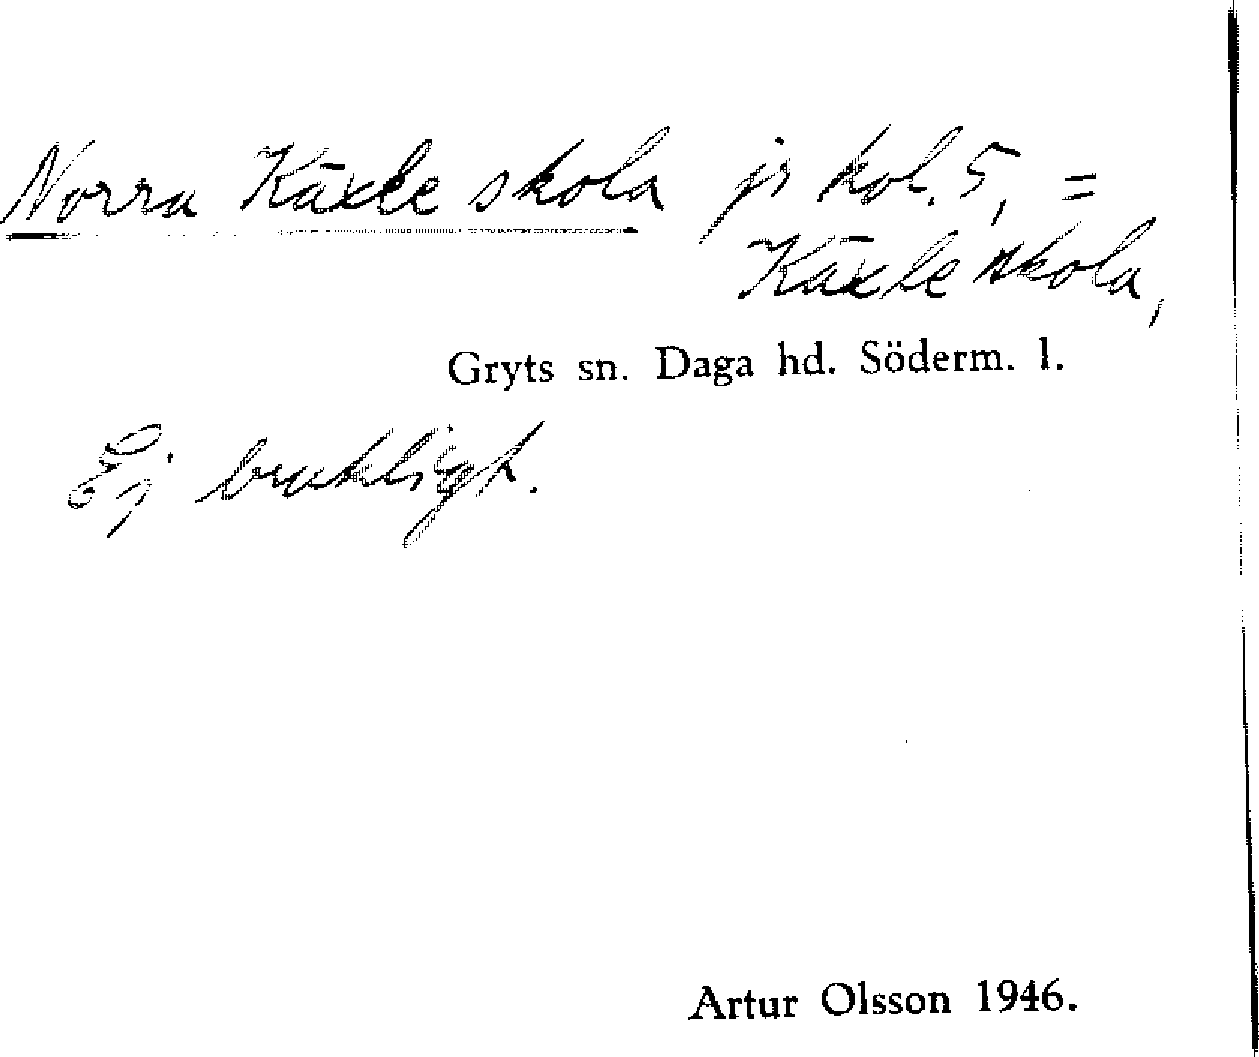 Norra Käxle skola jr kol. 5, =
Käxle skola,
Gryts sn. Daga hd. Söderm. l.
Ej brukligt.
Artur Olsson 1946.